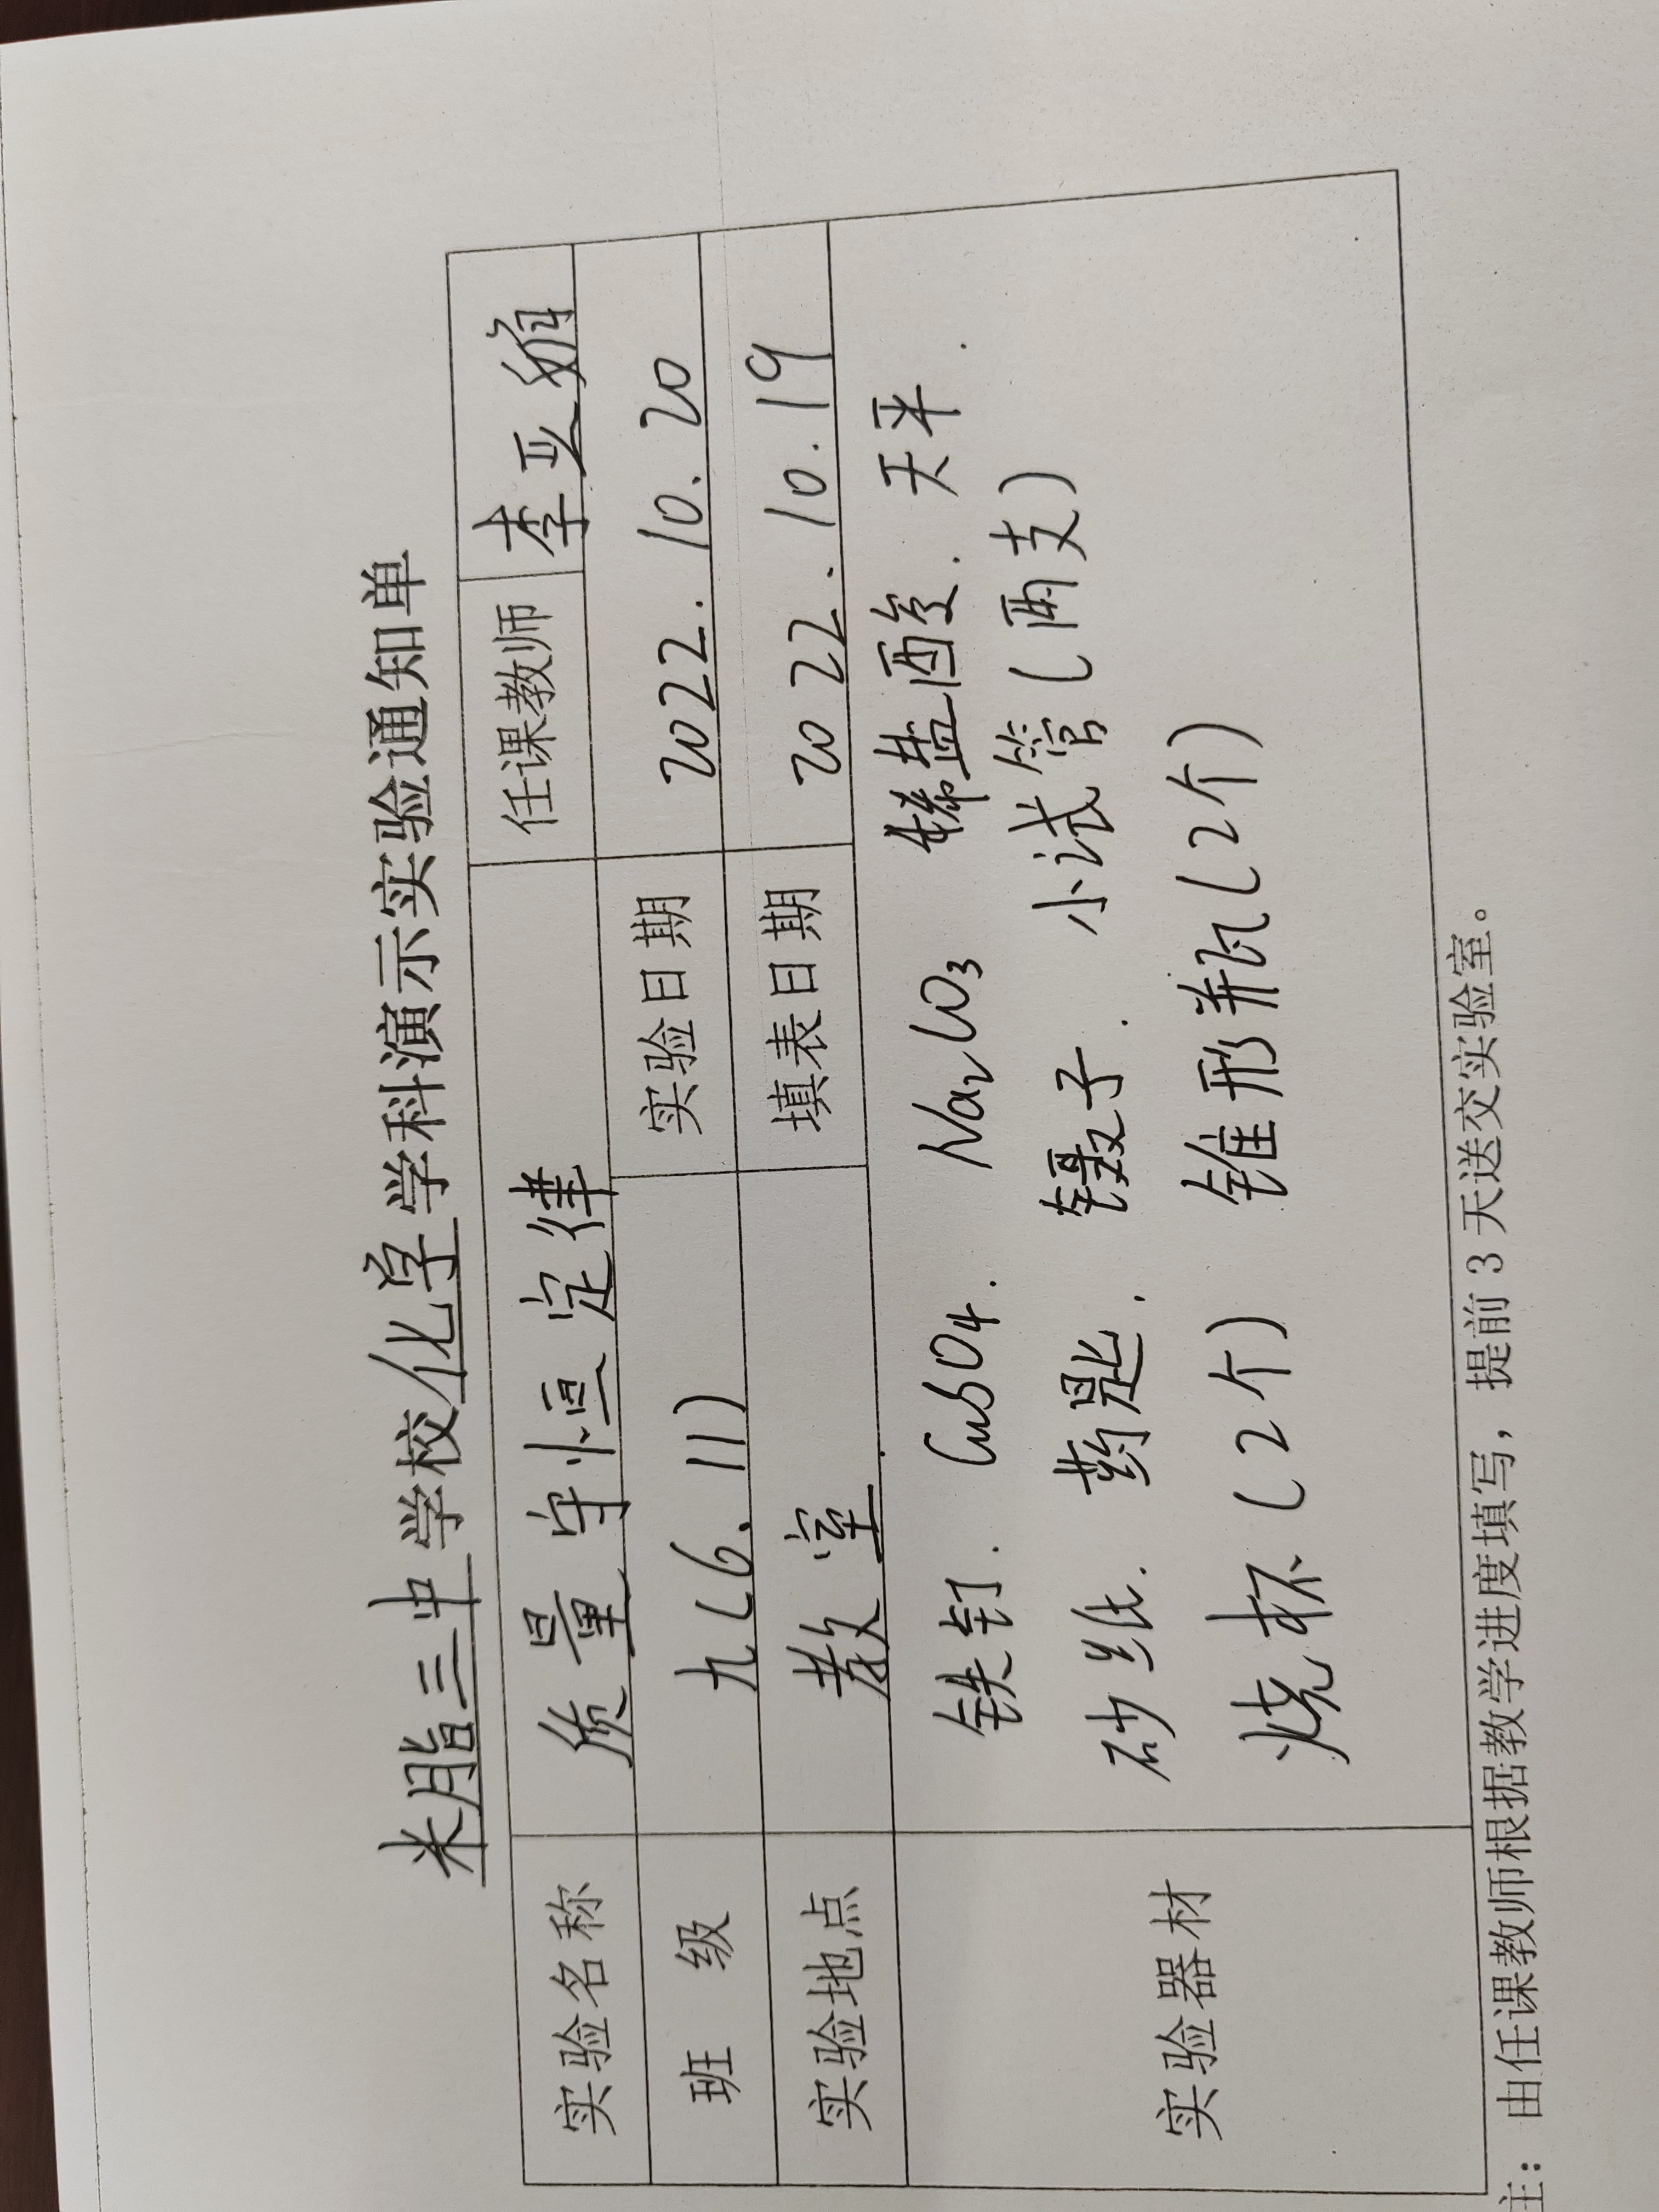 米脂三中学校化学学科演示实验通知单
实验名称 质量守恒定律 任课教师 李亚
班 级 九(6、11) 实验日期 2022.10.20
实验地点 教室 填表日期 2022.10.19
实验器材 铁钉. CuSO4. Na2CO3 稀盐酸. 天平.
砂纸. 药匙. 镊子. 小试管(两支)
烧杯(2个) 锥形瓶(2个)
主：由任课教师根据教学进度填写，提前3天送交实验室。